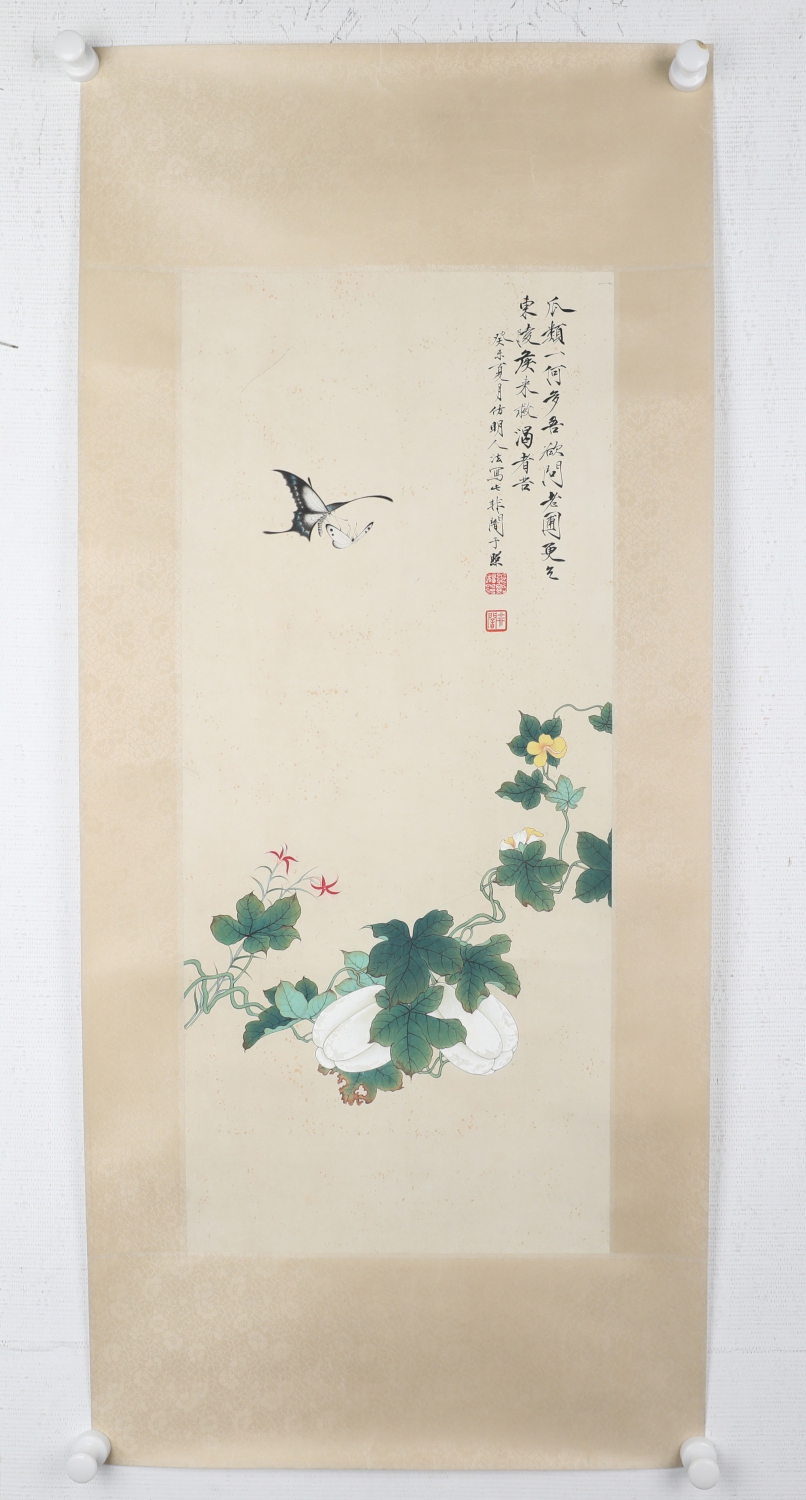 瓜類一何多吾欲問老圃更乞
東陵侯來漑渴者苦
癸未夏月仿明人法寫此 非闇于照